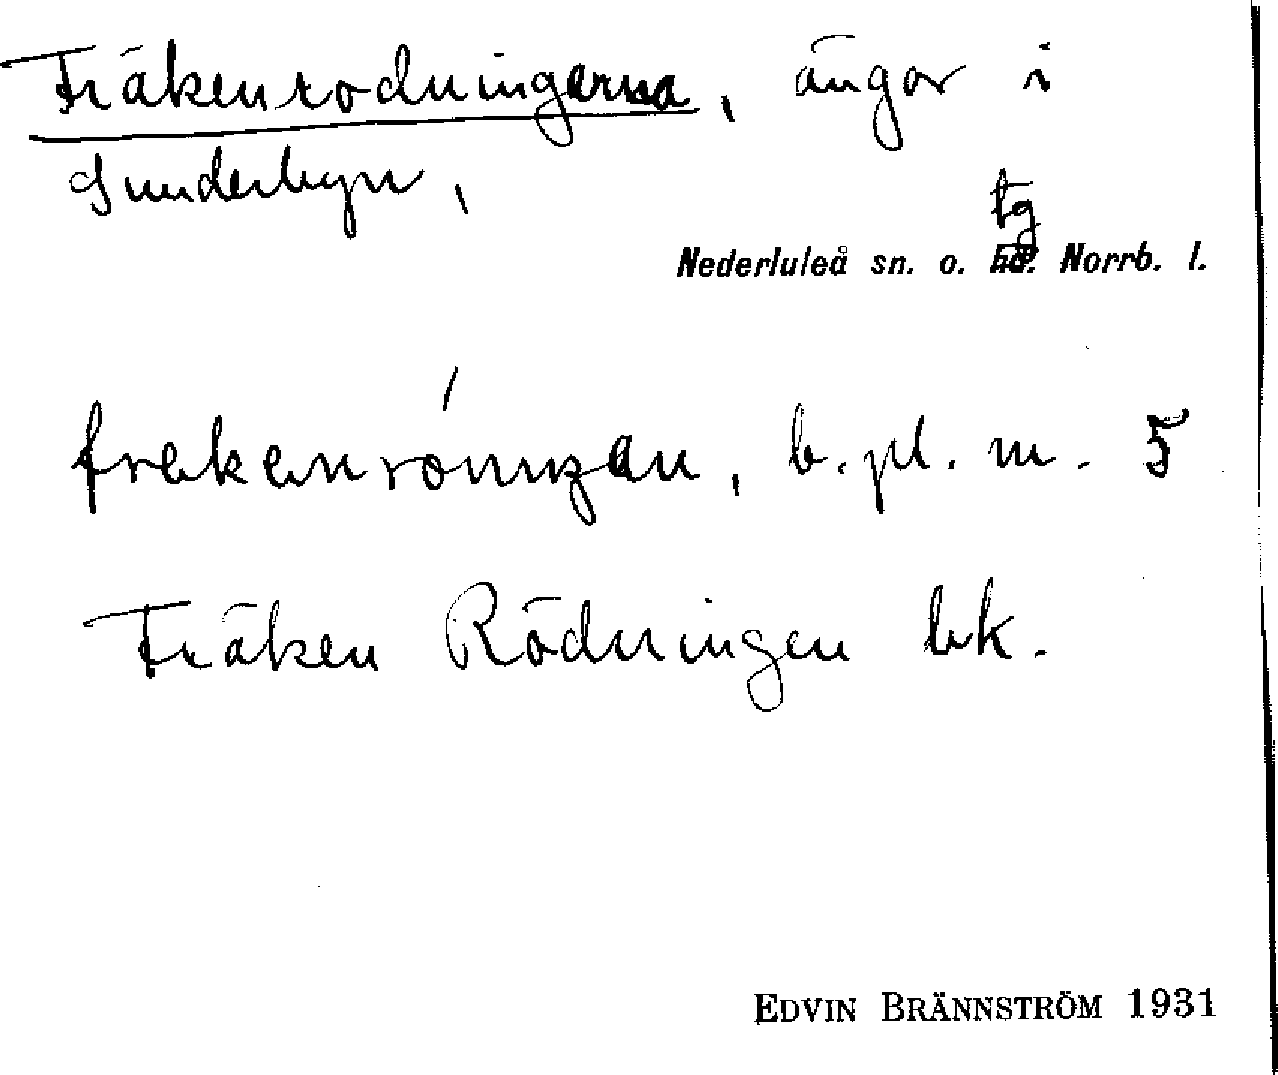 Fräkenrodningarna, ängar i
Sunderbyn,
tg
Nederluleå sn. o. Norrb. l.
frekenrónŋan, b.pl. m. 5
Fräken Rödningen lvk.
EDVIN BRÄNNSTRÖM 1931